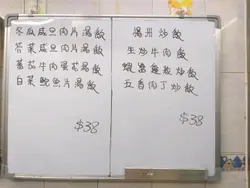 冬瓜咸旦肉片湯飯
芥菜咸旦肉片湯飯
蕃茄牛肉蛋花湯飯
白菜鯪魚片湯飯
$38
揚州炒飯
生炒牛肉飯
蝦醬雞粒炒飯
五香肉丁炒飯
$38